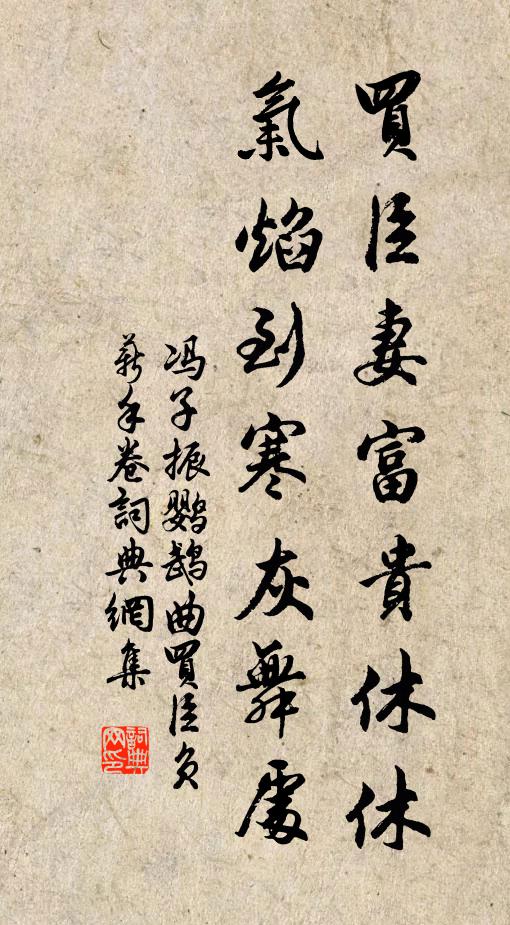 買臣妻富貴休休
氣焰到寒灰舞處
冯子振鹦鵡曲買臣负
薪手卷詞典網集
詞典
网印